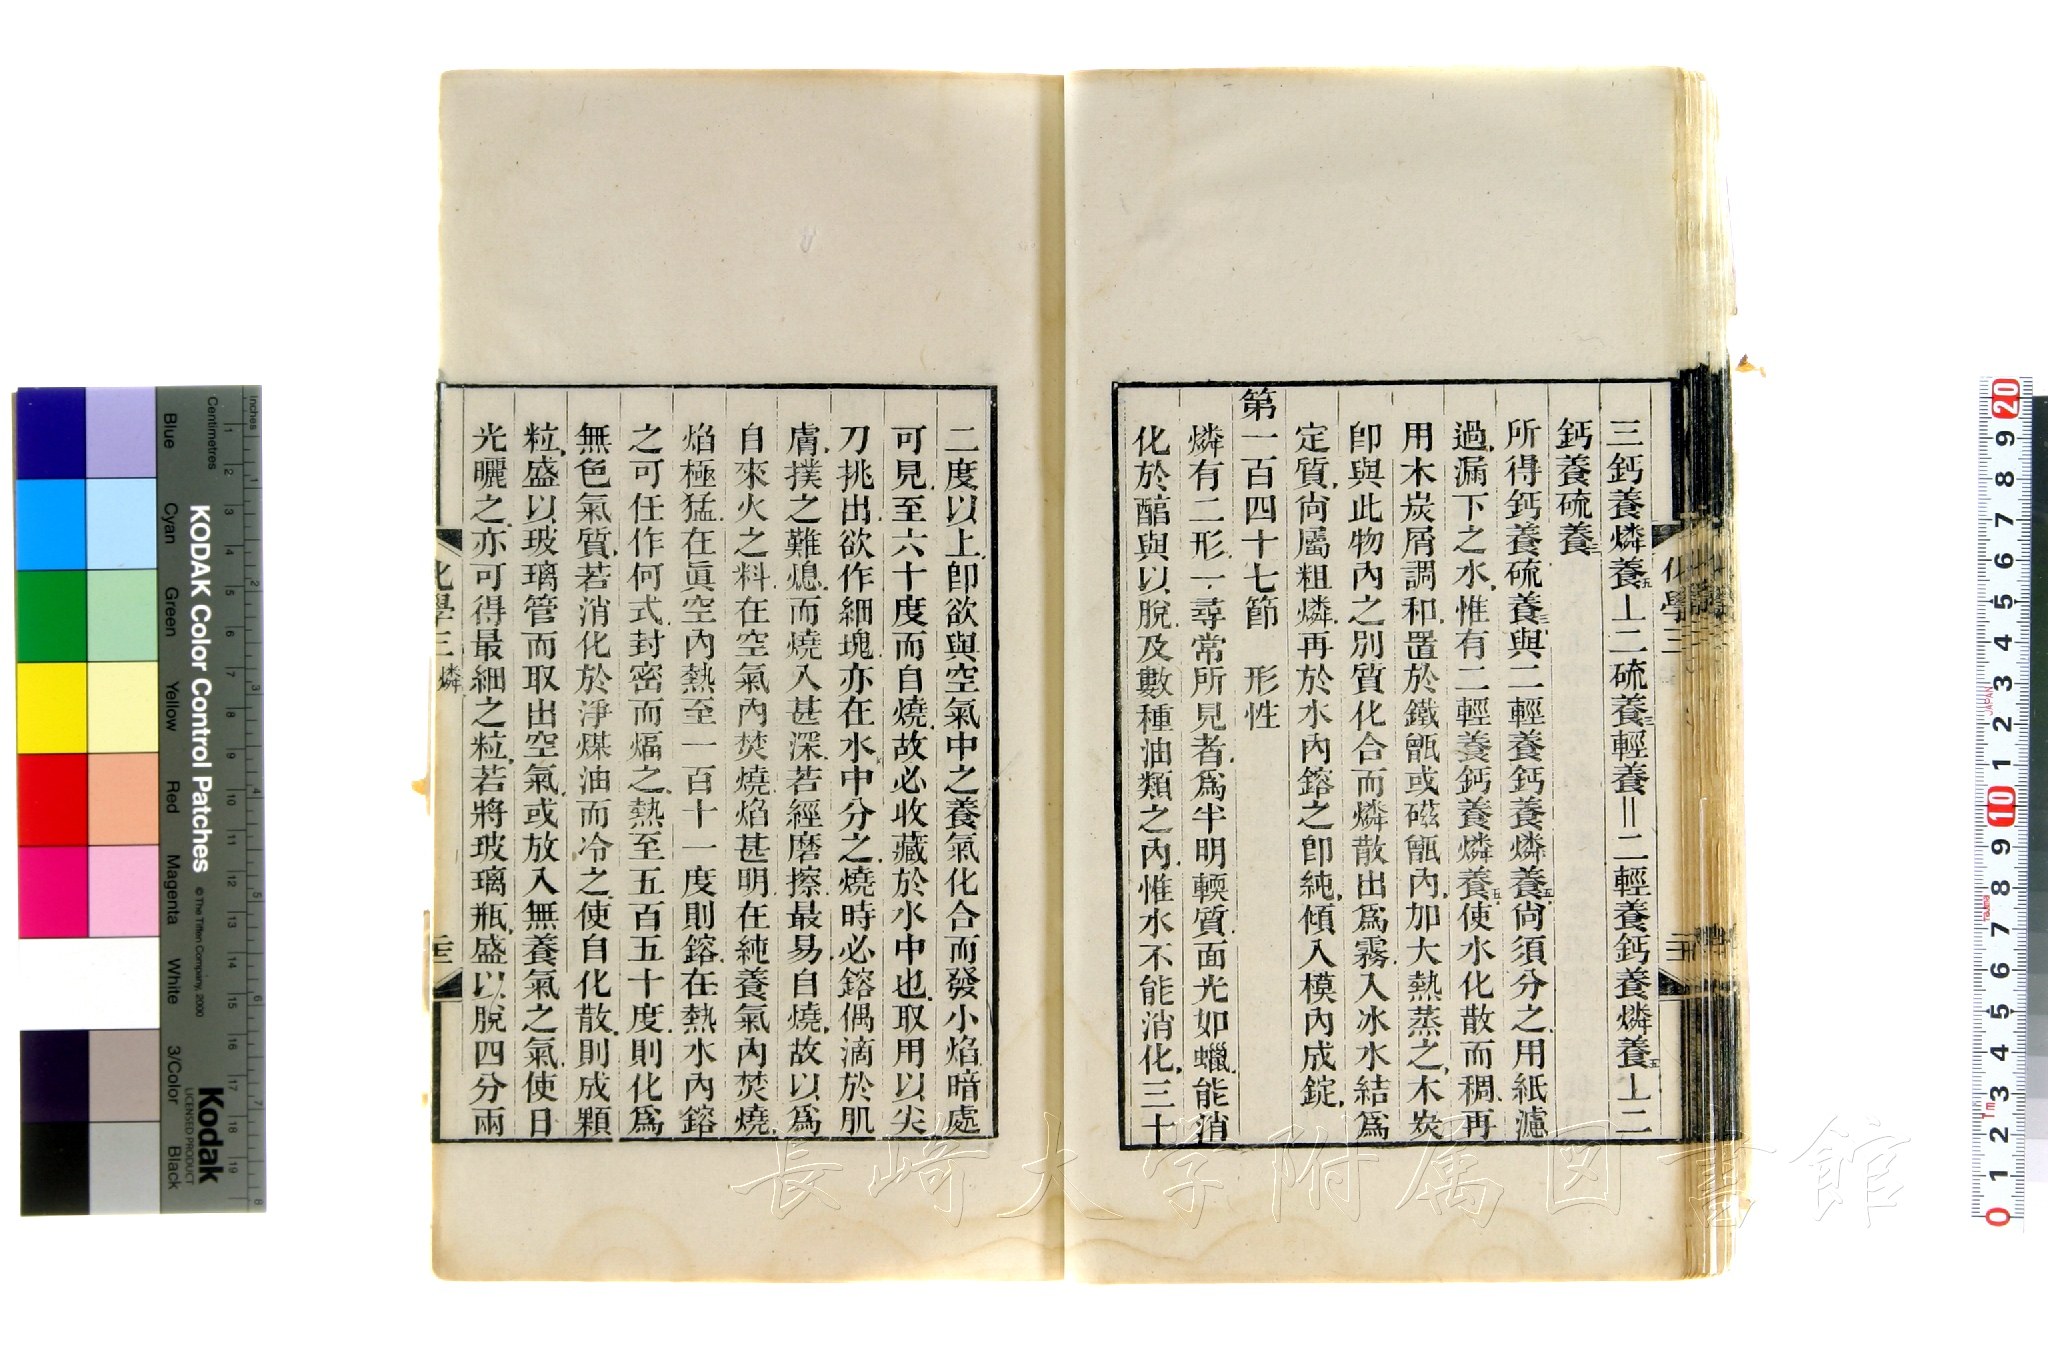 三鈣養燐養五⊥二硫養三輕養=二輕養鈣養燐養五⊥二
鈣養硫養三
所得鈣養硫養三與二輕養鈣養燐養五尙須分之用紙濾
過漏下之水惟有二輕養鈣養燐養五使水化散而稠再
用木炭屑調和置於鐵甑或磁甑內加大熱蒸之木炭
卽與此物內之別質化合而燐散出爲霧入冰水結爲
定質尙屬粗燐再於水內鎔之卽純傾入模內成錠
第一百四十七節 形性
燐有二形一尋常所見者爲半明輭質面光如蠟能消
化於醕與以脫及數種油類之內惟水不能消化三十
二度以上卽欲與空氣中之養氣化合而發小焰暗處
可見至六十度而自燒故必收藏於水中也取用以尖
刀挑出欲作細塊亦在水中分之燒時必鎔偶滴於肌
膚撲之難熄而燒入甚深若經磨擦最易自燒故以爲
自來火之料在空氣內焚燒焰甚明在純養氣內焚燒
焰極猛在眞空內熱至一百十一度則鎔在熱水內鎔
之可任作何式封密而煏之熱至五百五十度則化爲
無色氣質若消化於淨煤油而冷之使自化散則成顆
粒盛以玻璃管而取出空氣或放入無養氣之氣使日
光曬之亦可得最細之粒若將玻璃瓶盛以脫四分兩
化學三 燐
化學三
KODAK Color Control Patches
© The Tiffen Company, 2000
Kodak
LICENSED PRODUCT
Inches
Centimetres
Blue
Cyan
Green
Yellow
Red
Magenta
White
3/Color
Black
長崎大学附属図書館
JAPAN